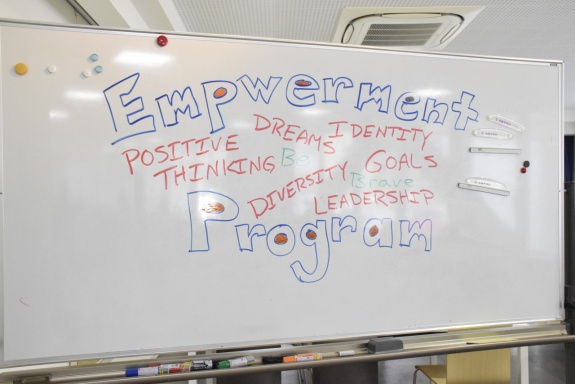 Empwerment
DREAMS IDENTITY
POSITIVE THINKING Be GOALS
DIVERSITY Brave
LEADERSHIP
Program